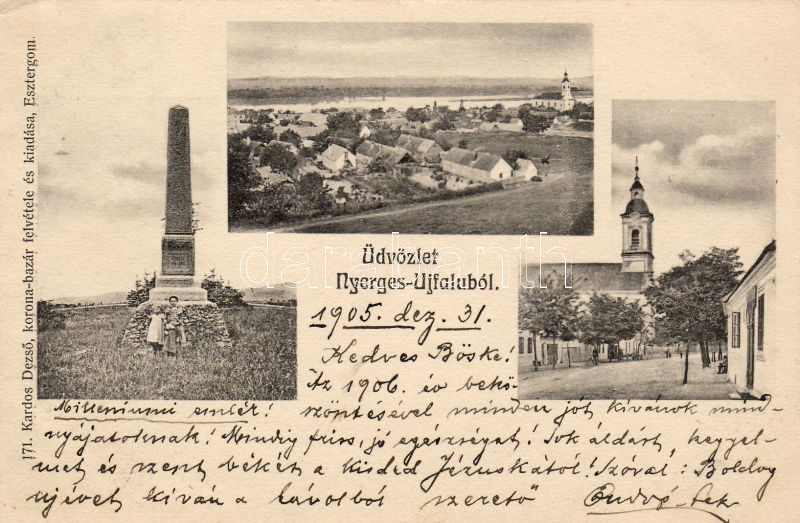 171. Kardos Dezső, korona-bazár felvétele és kiadása, Esztergom.
Üdvözlet
Nyerges-Ujfaluból.
darabanth
1905. dez. 31.
Kedves Böske!
Az 1906. év bekö-
Milleniumi emlék! szöntésével minden jót kívánok mind-
nyájatoknak! Mindig friss, jó egészséget! Sok áldást, kegyel-
met és szent békét a kisded Jézuskától! Szóval: Boldog
ujévet kíván a távolból szerető